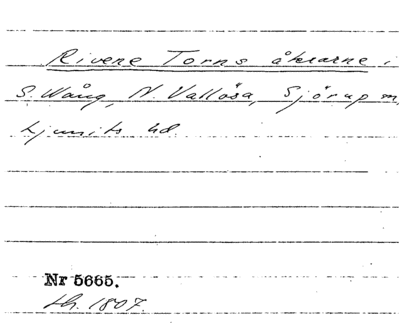 Rivene Torns åkrarne i
S. Wång, N. Vallösa, Sjörup m,
Ljunits hd.
Nr 5665.
LH. 1807.